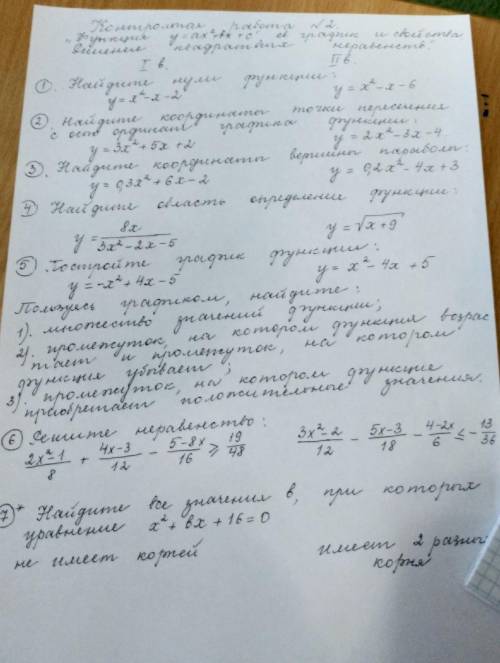 Контрольная работа №2.
"Функция y=ax²+bx+c, её график и свойства
Решение квадратных неравенств"
I в. II в.
1. Найдите нули функции:
y=x²-x-2 y=x²-x-6
2. Найдите координаты точки пересечения
с осью ординат графика функции:
y=3x²+5x+2 y=2x²-3x-4
3. Найдите координаты вершины параболы:
y=0,3x²+6x-2 y=0,2x²-4x+3
4 Найдите область определение функции:
y=8x/(3x²-2x-5) y=√(x+9)
5. Постройте график функции:
y=-x²+4x-5 y=x²-4x+5
Пользуясь графиком, найдите:
1). множество значений функции;
2). промежуток, на котором функция возрас
тает и промежуток, на котором
функция убывает;
3). промежуток, на котором функция
приобретает положительное значения.
6 Решите неравенство:
(2x²-1)/8 + (4x-3)/12 - (5-8x)/16 ≥ 19/48 (3x²-2)/12 - (5x-3)/18 - (4-2x)/6 ≤ -13/36
7* Найдите все значения в, при которых
уравнение x²+вx+16=0
не имеет корней имеет 2 разных
корня